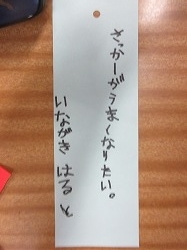 さっかーがうまくなりたい。
いながき はると